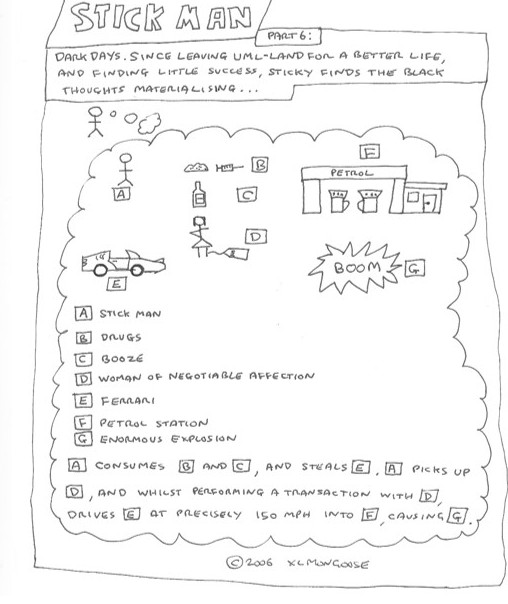 STICK MAN
PART 6:
DARK DAYS. SINCE LEAVING UML-LAND FOR A BETTER LIFE,
AND FINDING LITTLE SUCCESS, STICKY FINDS THE BLACK
THOUGHTS MATERIALISING...
A
B
C
D
E
F
PETROL
BOOM
G
A STICK MAN
B DRUGS
C BOOZE
D WOMAN OF NEGOTIABLE AFFECTION
E FERRARI
F PETROL STATION
G ENORMOUS EXPLOSION
A CONSUMES B AND C, AND STEALS E. A PICKS UP
D, AND WHILST PERFORMING A TRANSACTION WITH D,
DRIVES E AT PRECISELY 150 MPH INTO F, CAUSING G.
© 2006 XLMONGOOSE